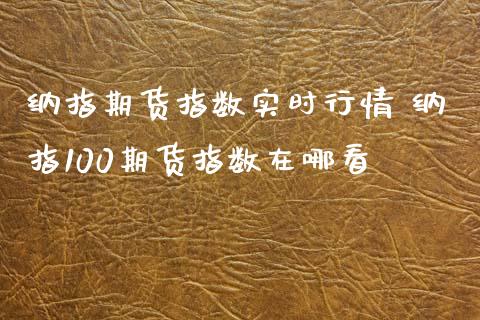 纳指期货指数实时行情 纳
指100期货指数在哪看